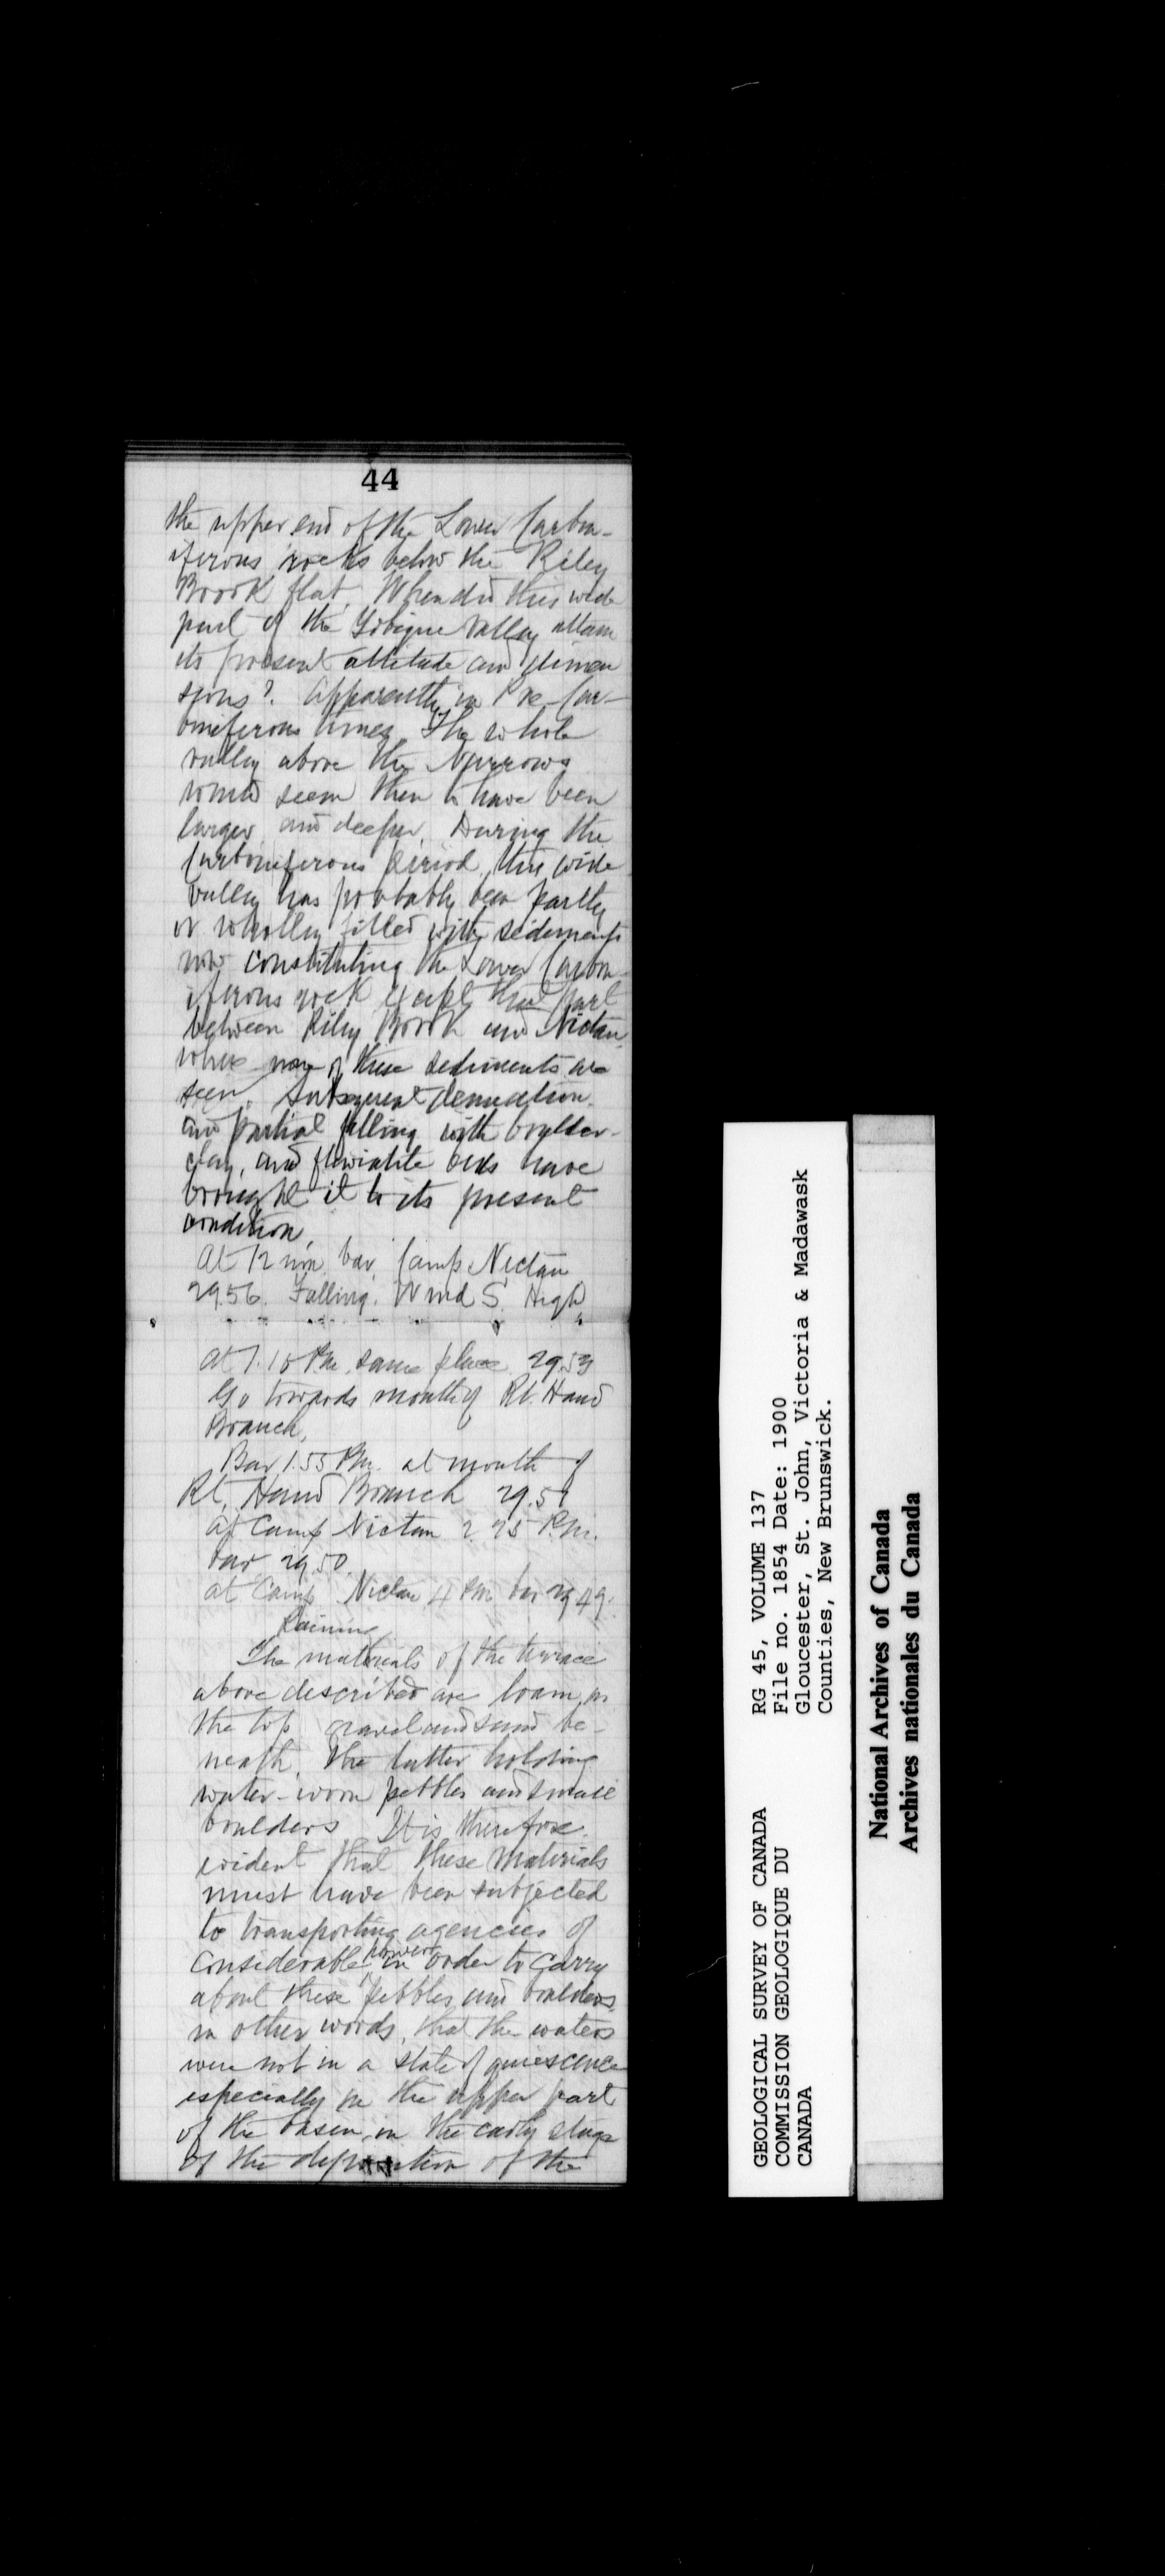 44
the upper end of the Lower Carbon-
iferous rocks below the Riley
Brook flat. When did this wide
part of the Tobique Valley attain
its present attitude and dimen
sions? Apparently in Pre-Car-
boniferous times. The whole
valley above the Narrows
would seem then to have been
larger and deeper. During the
Carboniferous period, this wide
valley has probably been partly
or wholly filled with sediments
now constituting the Lower Carbon-
iferous rock except that part
between Riley Brook and Nictau,
where none of these sediments are
seen. Subsequent denudation
and partial filling with boulder-
clay, and fluviatile beds have
brought it to its present
condition.
At 12 noon bar. Camp Nictau
29.56. Falling. Wind S. High
At 1.10 P.M. same place 29.53
Go towards mouth of Rt. Hand
Branch.
Bar 1.55 P.M. at mouth of
Rt. Hand Branch 29.51
At Camp Nictau 2.25 P.M.
bar 29.50.
At Camp Nictau 4 P.M. bar 29.49.
Raining
The materials of the terrace
above described are loam on
the top gravel and sand be-
neath, the latter holding
water-worn pebbles and small
boulders. It is therefore
evident that these materials
must have been subjected
to transporting agencies of
considerable power in order to carry
about these pebbles and boulders,
in other words, that the waters
were not in a state of quiescence
especially in the upper part
of the basin, in the early stage
of the deposition of the
GEOLOGICAL SURVEY OF CANADA
COMMISSION GEOLOGIQUE DU
CANADA
RG 45, VOLUME 137
File no. 1854 Date: 1900
Gloucester, St. John, Victoria & Madawask
Counties, New Brunswick.
National Archives of Canada
Archives nationales du Canada